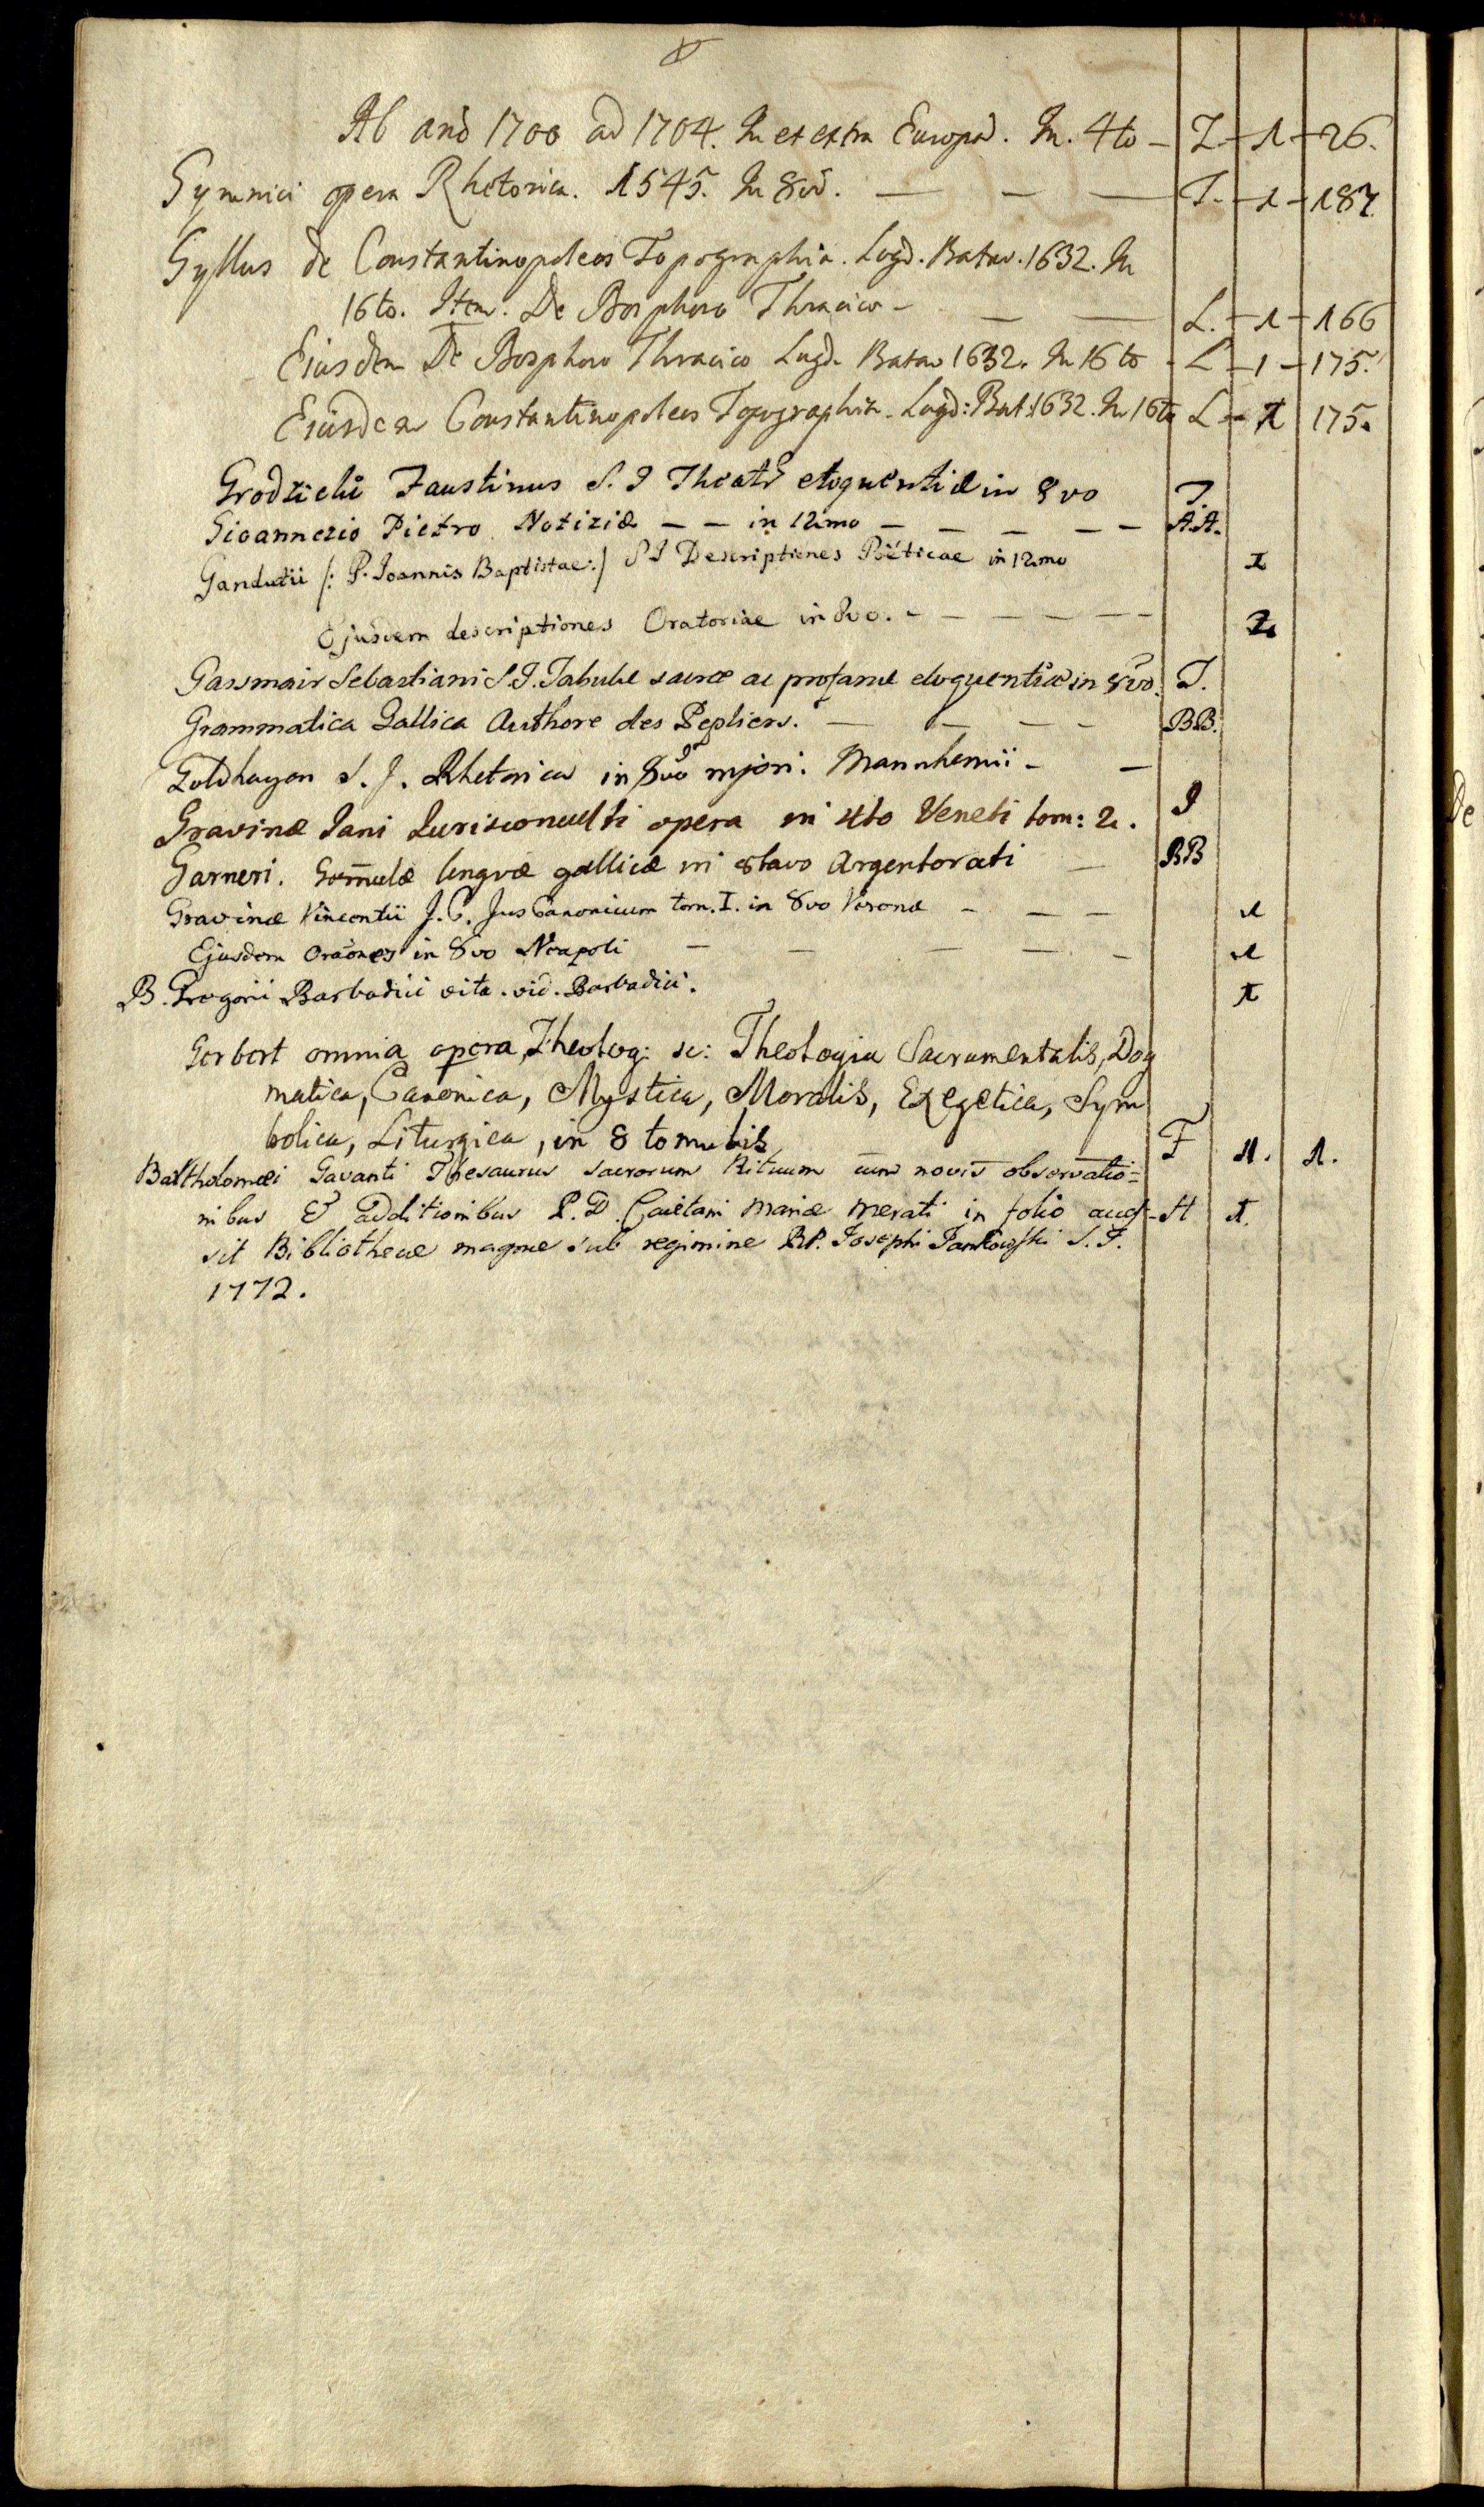 Ab anõ 1700 ad 1704. In et extra Europã. In. 4to - I - 1 - 26.
Gymnici opera Rhetorica. 1545. In 8võ. — — — T. - 1 - 187.
Gyllus de Constantinopoleos Topographia. Lugd. Batav. 1632. In
16to. Item. De Bosphoro Thracico - — — L. - 1 - 166
Eiusdem De Bosphoro Thracico Lugd. Batav 1632. In 16to - L - 1 - 175.
Eiusdem Constantinopoleos Topographia. Lugd: Bat: 1632. In 16to L - 1 175.
Grodzicki Faustinus S. I Theatr eloquentiæ in 8vo T.
Gioannezio Pietro Notiziæ — — in 12mo — — — — — A.A.
Gandutii /: P. Joannis Baptistae :/ S I Descriptiones Poëticae in 12mo I
Ejusdem descriptiones Oratoriae in 8vo. - — — — — —
Gassmair Sebastiani S.I. Tabulæ sacræ ac profanæ eloquentiæ in 8vo. T.
Grammatica Gallica Authore des Pepliers. — — — — BB.
Goldhagen S. J. Rhetorica in 8vo mjori. Mannhemii - —
Gravinæ Jani Jurisconculti opera in 4to Veneti tom: 2. I
Garneri. Formulæ lingvæ gallicæ in 8tavo Argentorati — BB
Gravinæ Vincentii J. C. Jus Canonicum tom. I. in 8vo Veronæ - — —
Ejusdem oraōnes in 8vo Neapoli — — — — —
B. Gregorii Barbadici vita. vid. Barbadici.
Gerbert omnia opera Theolog: sc: Theologia Sacramentalis, Dog
matica, Canonica, Mystica, Moralis, Exegetica, Sym
bolica, Liturgica, in 8 tomulis F 1. 1.
Bartholomæi Gavanti Thesaurus sacrorum Rituum cum novis observatio=
nibus & additionibus P. D. Caietani Mariæ Merati in folio auc- H 1.
sit Bibliothecæ magnæ sub regimine RP. Josephi Pankowski S. J.
1772.